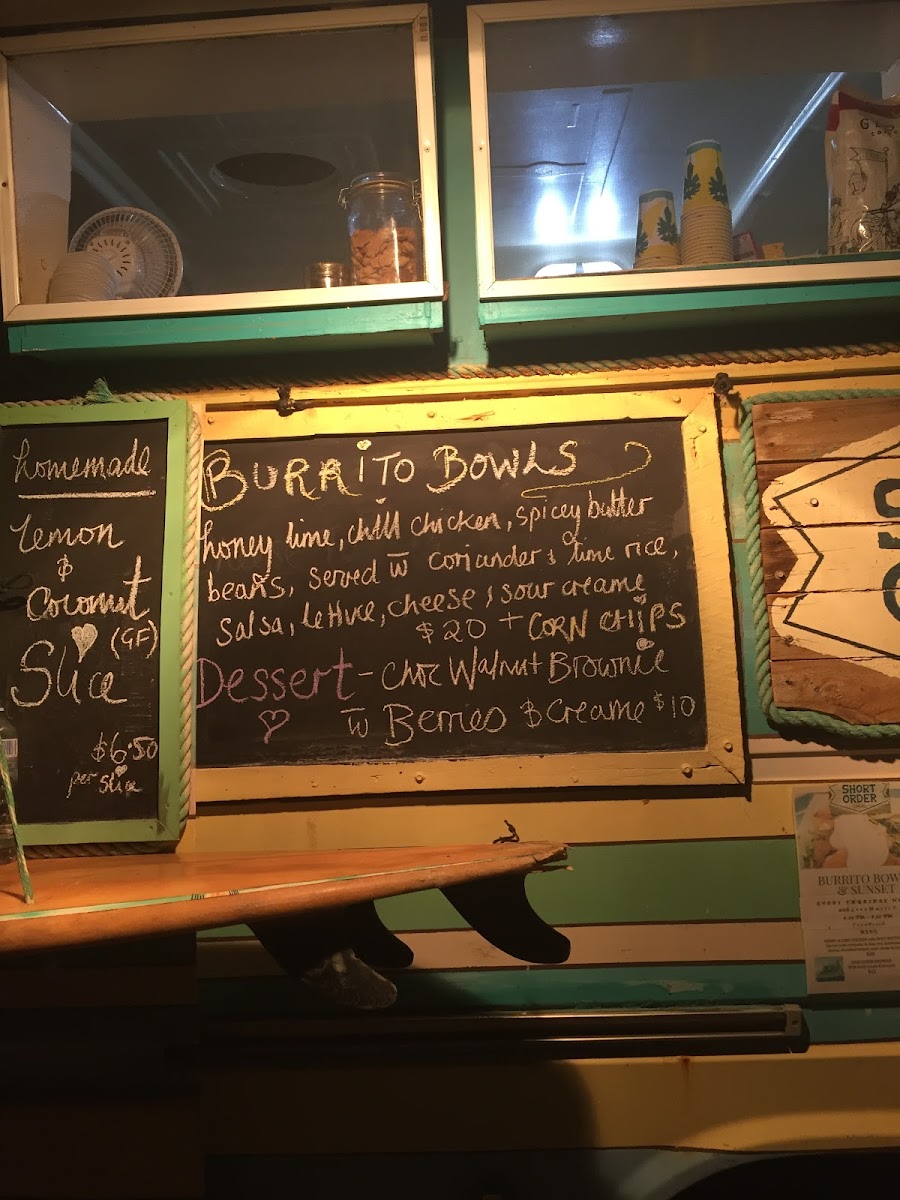 homemade
lemon
&
Coconut
(GF)
Slice
$6.50
per slice
BURRITO BOWLS
honey lime, chilli chicken, spicey butter
beans, served w coriander & lime rice,
salsa, lettuce, cheese & sour creame
$20 + CORN CHIPS
Dessert - Choc Walnut Brownie
w Berries & Creame $10
SHORT
ORDER
BURRITO BOW
& SUNSET